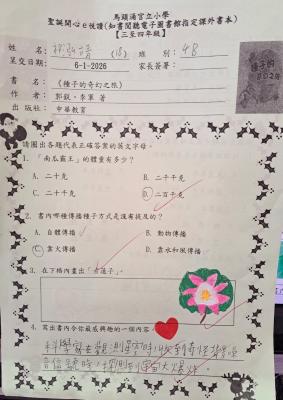 馬頭涌官立小學
聖誕開心e悅讀(如書閱聽電子圖書館指定課外書本)
【三至四年級】
姓名: (18) 班別: 4B
呈交日期: 6-1-2026 家長簽署:
書名: 《種子的奇幻之旅》
作者: 郭銳、李軍 著
出版社: 中華教育
請圈出各題代表正確答案的英文字母。
1. 「南瓜霸王」的體重有多少?
A. 二十克 C. 二千千克
B. 二十千克 D. 二百千克
2. 書內哪種傳播種子方式是沒有提及的?
A. 自體傳播 B. 動物傳播
C. 靠火傳播 D. 靠水和風傳播
3. 在下格內畫出「香蓮子」。
4. 寫出書內令你最感興趣的一個內容。
科學家在觀測星空時,收到奇怪
音信號時,探測到宇宙大爆炸。